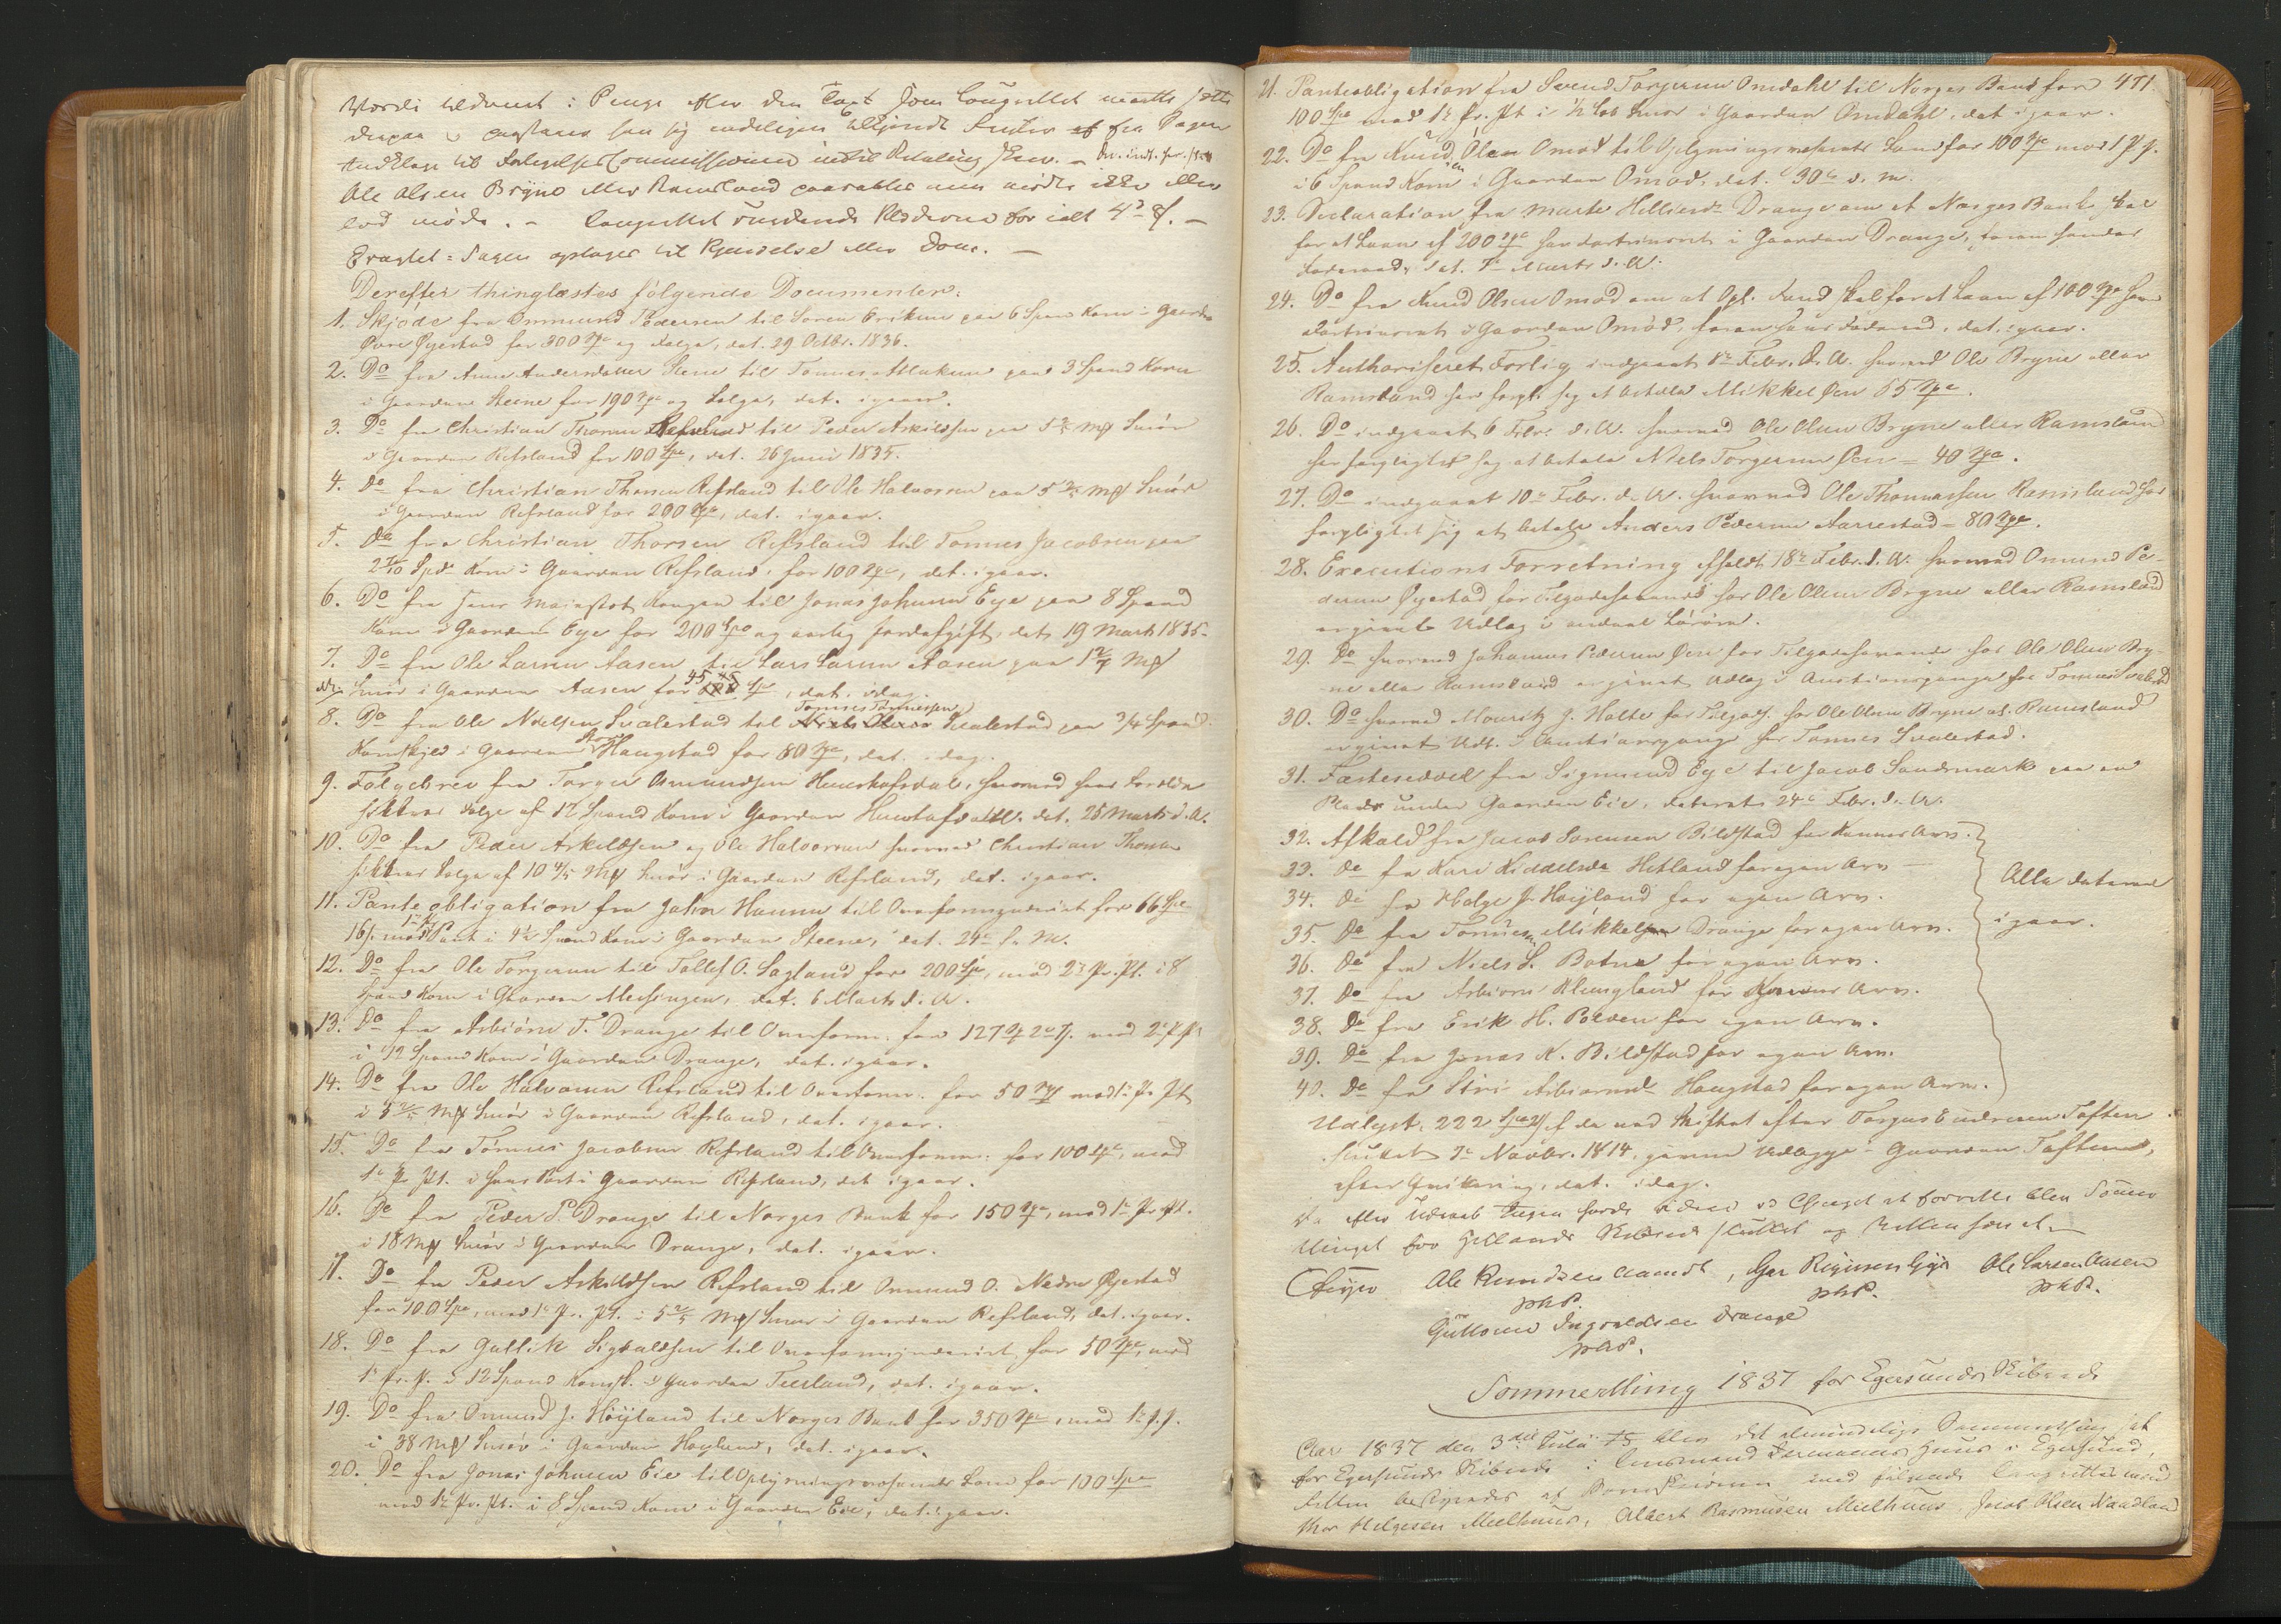 Værdi udveist i Penge eller den Taxt som Laugrettet maatte sætte
derpaa
Indklage til Forligelsescommissionen indtil Betaling skeer. –
Ole Olsen Bryne eller Ramsland paaraabt men mødte ikke eller
lod møde. – Laugrettet
Eragtet: Sagen optages til Kjendelse eller Dom. –
Derefter thinglæstes følgende Documenter:
1. Skjøde fra Ommund Pedersen til Søren Eriksen paa 6 Spand Korn i Gaarden
Øvre Øgrestad for 300 Spd og Folge, dat. 29 Octbr. 1836.
2. Do fra Anne Andersdatter Steene til Tønnes paa 3 Spand Korn
i Gaarden Steene for 190 Spd og Folge, dat. igaar.
3. Do fra Christian Thorsen Refsland til Peder Askildsen paa 5 2/5 Mk Smør
i Gaarden Refsland for 100 Spd, dat. 26 Juni 1835.
4. Do fra Christian Thorsen Refsland til Ole Halvorsen paa 5 2/5 Mk Smør
i Gaarden Refsland for 200 Spd, dat. igaar.
5. Do fra Christian Thorsen Refsland til Tønnes Jacobsen paa
Spd Korn i Gaarden Refsland for 100 Spd, dat. igaar.
6. Do fra Hans Majestæt Kongen til Jonas Johnsen Eye paa 8 Spand
Korn i Gaarden Eye for 200 Spd og aarlig Jordafgift, dat. 19 Marts 1835.
7. Do fra Ole Larsen Aasen til Lars Larsen Aasen paa 1 2/7 Mk
Smør i Gaarden Aasen for 45 Spd, dat. idag.
8. Do fra Ole Nielsen Svalestad til Tønnes Tønnessen Svalestad paa 3/4 Spand
Kornskyld i Gaarden Store Haugstad for 80 Spd, dat. idag.
9. Følgebrev fra Torger Omundsen hvorved hans Forældre
sikkres Folge af 12 Spand Korn i Gaarden dat. 28 Marts d. A.
10. Do fra Peder Askildsen og Ole Halvorsen hvorved Christian Thorsen
sikkres Folge af 10 4/5 Mk Smør i Gaarden Refsland, dat. igaar.
11. Panteobligation fra John Hansen til Overformynderiet for 66 Spd
16 s. med 1ste Pr. Pant i 4 1/2 Spand Korn i Gaarden Steene, dat. 24de f. M.
12. Do fra Ole Torgersen til Tollef O. Sagland for 200 Spd, med 2den Pr. Pt. i 8
Spand Korn i Gaarden Messingen, dat. 6 Marts d. A.
13. Do fra Asbiørn T. Drange til Overform. for 127 Spd med 2 P. P.
i 12 Spand Korn i Gaarden Drange, dat. igaar.
14. Do fra Ole Halvorsen Refsland til Overform. for 50 Spd med 1ste Pr. Pt.
i 5 2/5 Mk Smør i Gaarden Refsland, dat. igaar.
15. Do fra Tønnes Jacobsen Refsland til Overform. for 100 Spd, med
1ste Pr. Pt. i hans Part i Gaarden Refsland, dat. igaar.
16. Do fra Peder P. Drange til Norges Bank for 150 Spd, med 1ste Pr. Pt.
i 18 Mk Smør i Gaarden Drange, dat. igaar.
17. Do fra Peder Askildsen Refsland til Ommund O. Nedre Øgrestad
for 100 Spd, med 1ste Pr. Pt. i 5 2/5 Mk Smør i Gaarden Refsland, dat. igaar.
18. Do fra Gullik Sigbaldsen til Overformynderiet for 50 Spd, med
1 Pr. P. i 12 Spand Kornsk. i Gaarden Teesland, dat. igaar.
19. Do fra Omund J. Høyland til Norges Bank for 350 Spd, med 1ste P. P.
i 38 Mk Smør i Gaarden Høyland, dat. igaar.
20. Do fra Jonas Johnsen Eie til Oplysningsvæsenets Fond for 100 Spd
med 1ste Pr. Pt. i 8 Spand Korn i Gaarden Eie, dat. igaar.
471.
21. Panteobligation fra Svend Torgersen Omdahl til Norges Bank for
100 Spd med 1ste Pr. Pt i 1/2 Løb Smør i Gaarden Omdahl, dat igaar.
22. Do fra Knud Olsen Omod til Oplysningsvæsenets Fond for 100 Spd med 1 P. P.
i 6 Spand Korn i Gaarden Omod, dat. 30te d. M.
23. Declaration fra Marte Drange om at Norges Bank skal
for et Laan af 200 Spd have i Gaarden Drange, foran hendes
Føderaad, dat. Marts d. A.
24. Do fra Knud Olsen Omod om at Opl. Fond skal for et Laan af 100 Spd have
i Gaarden Omod, foran hans Føderaad, dat. igaar.
25. Authoriseret Forlig indgaaet 8de Febr. d. A. hvorved Ole Bryne eller
Ramsland har forpl. sig at betale Mikkel Øen 55 Spd.
26. Do indgaaet 6 Febr. d. A. hvorved Ole Olsen Bryne eller Ramsland
har forpligtet sig at betale Niels Torgersen Øen – 40 Spd.
27. Do indgaaet 10de Febr. d. A. hvorved Ole Thomassen Ramsland har
forpligtet sig at betale Anders Pedersen Aarrestad – 80 Spd.
28. Executions Forretning afholdt 18de Febr. d. A. hvorved Omund Pe-
dersen Øgrestad for Tilgodehavende hos Ole Olsen Bryne eller Ramsland
er gjort Udlæg i endeel Løsøre.
29. Do hvorved Johannes Pedersen Øen for Tilgodehavende hos Ole Olsen Bry-
ne eller Ramsland er gjort Udlæg i Auctionspenge hos Tønnes Svalestad
30. Do hvorved Mouritz J. Holte for Tilgodeh. hos Ole Olsen Bryne el. Ramsland
er gjort Udl. i Auctionspenge hos Tønnes Svalestad.
31. Fæsteseddel fra Sigmund Eye til Jacob Sandsmark paa en
Plads under Gaarden Eie, dateret 24de Febr. d. A.
32. Afkald fra Jacob Sørensen Bilstad for Arv.
33. do fra Kari Hetland for egen Arv
34. do fra Helge J. Høyland for egen Arv.
35. do fra Tønnes Mikkelsen Drange for egen Arv.
36. do fra Niels S. Botne for egen Arv.
37. do fra Asbiørn for Arv.
38. do fra Erik H. Polden for egen Arv.
39. do fra Jonas N. Bilstad for egen Arv.
40. do fra Siri Asbiørnsd. Haugstad for egen Arv.
Alle daterede
igaar.
Udlyst: 222 Spd de ved Skiftet efter Torgus Endresen Toften
sluttet Novbr. 1814, gjorte Udlægge i Gaarden Toften,
efter Qvittering, dat. idag.
Da efter Udraab Ingen havde videre ved Thinget at forrette blev Sommer
thinget for Hellands Skibrede sluttet og Retten hævet.
Feyer Ole Knudsen Aamodt, Ger Reiersen Eye Ole Larsen Aasen
m. p. P. m. p. P. m. p. P.
Guttorm Ingvaldsen Drange
m. p. P.
Sommerthing 1837 for Egersunds Skibrede
Aar 1837 den 3die Juli blev det almindelige Sommerthing sat
for Egersunds Skibrede i Lensmand Huus i Egersund,
Retten betjentes af Sorenskriveren med følgende Laugrettesmænd
Thor Helgesen Mælhuus, Albert Rasmusen Mielhuus, Jacob Olsen Nandland